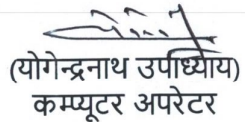 (योगेन्द्रनाथ उपाध्याय)
कम्प्यूटर अपरेटर